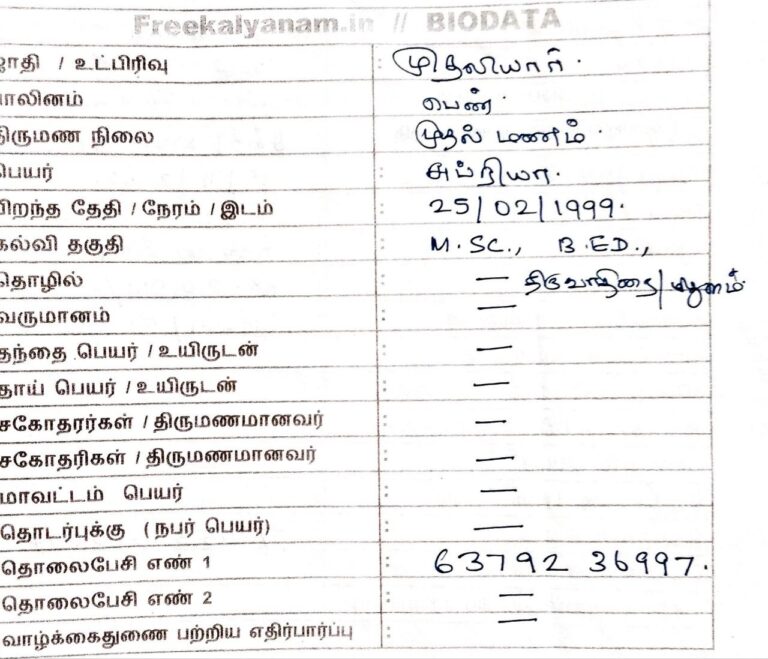 Freekalyanam.in // BIODATA
ஜாதி / உட்பிரிவு : முதலியார்.
பாலினம் பெண்.
திருமண நிலை : முதல் மணம்.
பெயர் : சுப்ரியா.
பிறந்த தேதி / நேரம் / இடம் : 25/02/1999.
கல்வி தகுதி : M.SC., B.ED.,
தொழில் : — திருவாதிரை / மிதுனம்.
வருமானம் : —
தந்தை பெயர் / உயிருடன் : —
தாய் பெயர் / உயிருடன் : —
சகோதரர்கள் / திருமணமானவர் : —
சகோதரிகள் / திருமணமானவர் : —
மாவட்டம் பெயர் : —
தொடர்புக்கு (நபர் பெயர்) : —
தொலைபேசி எண் 1 : 63792 36997.
தொலைபேசி எண் 2 : —
வாழ்க்கைதுணை பற்றிய எதிர்பார்ப்பு : —